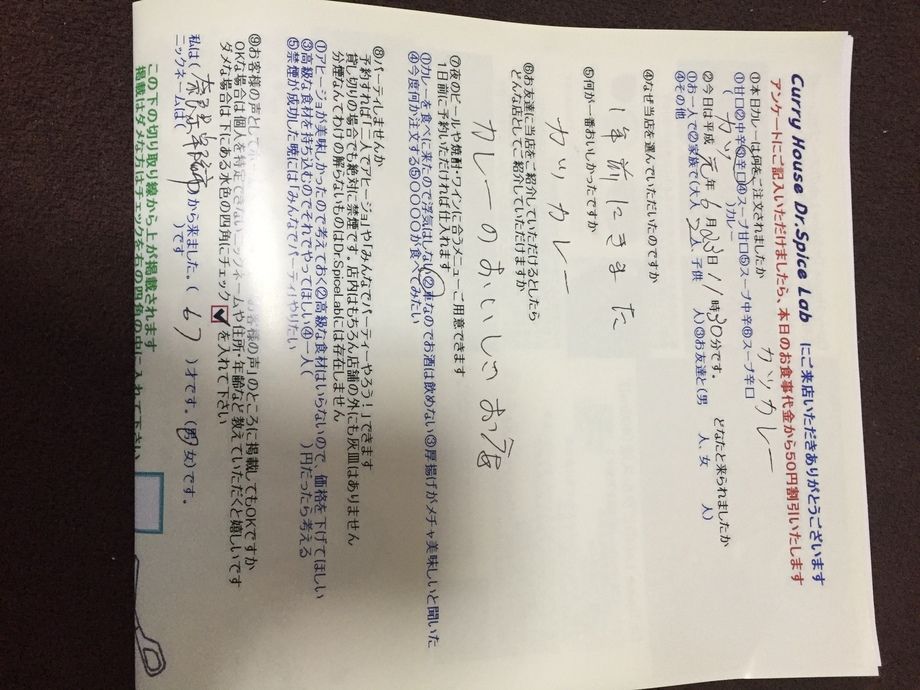 Curry House Dr.Spice Lab にご来店いただきありがとうございます
アンケートにご記入いただけましたら、本日のお食事代金から50円割引いたします
①本日カレーは何をご注文されましたか カツカレー
①甘口②中辛③辛口④スープ甘口⑤スープ中辛⑥スープ辛口
( カツ )カレー
②今日は平成 元年 6月23日 11時30分です。 どなたと来られましたか
①お一人で②家族で(大人 人 子供 人)③お友達と(男 人、女 人)
④その他
④なぜ当店を選んでいただいたのですか
1年前にきました
⑤何が一番おいしかったですか
カツカレー
⑥お友達に当店をご紹介していただけるとしたら
どんな店としてご紹介していただけますか
カレーのおいしいお店
⑦夜のビールや焼酎・ワインに合うメニューご用意できます
1日前に予約いただければ仕入れます
①カレーを食べに来たので浮気はしない②車なのでお酒は飲めない③厚揚げがメチャ美味しいと聞いた
④今度何か注文する⑤○○○○が食べてみたい
⑧パーティしませんか
予約すれば「二人でアヒージョ」や「みんなでパーティーやろう!」できます
貸し切りの場合でも絶対に禁煙です。店内はもちろん店舗の外にも灰皿はありません
分煙なんてわけの解らないものはDr.SpiceLabには存在しません
①アヒージョが美味しかったので考えておく②高級な食材はいらないので、価格を下げてほしい
③高級な食材を持ち込むのでそれでやってほしい④一人( )円だったら考える
⑤禁煙が成功した暁には「みんなでパーティ」やりたい
⑨お客様の声として 客様の声」のところに掲載してもOKですか
OKな場合は個人を特定できないニックネームや住所・年齢など教えていただくと嬉しいです
ダメな場合は下にある水色の四角にチェック☑を入れて下さい
私は( 市から来ました。( 67 )才です。(男 女)です。
ニックネームは( )です
この下の切り取り線から上が掲載されます
掲載はダメな方はチェックを右の四角の中に入れて下さい